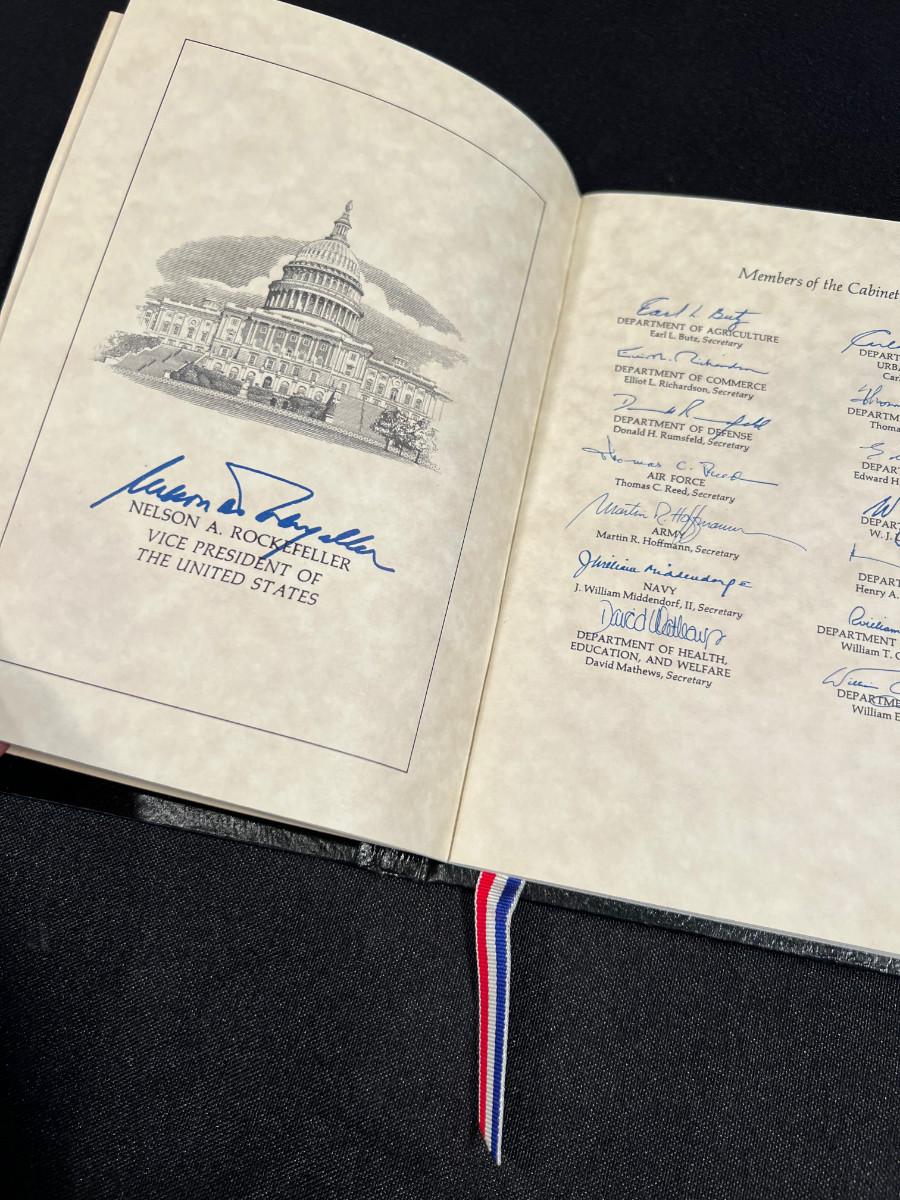 Nelson A. Rockefeller
NELSON A. ROCKEFELLER
VICE PRESIDENT OF
THE UNITED STATES
Members of the Cabinet
Earl L. Butz
DEPARTMENT OF AGRICULTURE
Earl L. Butz, Secretary
Elliot L. Richardson
DEPARTMENT OF COMMERCE
Elliot L. Richardson, Secretary
Donald Rumsfeld
DEPARTMENT OF DEFENSE
Donald H. Rumsfeld, Secretary
Thomas C. Reed
AIR FORCE
Thomas C. Reed, Secretary
Martin R. Hoffmann
ARMY
Martin R. Hoffmann, Secretary
J William Middendorf
NAVY
J. William Middendorf, II, Secretary
David Mathews
DEPARTMENT OF HEALTH,
EDUCATION, AND WELFARE
David Mathews, Secretary
DEPART
URBA
Carl
DEPARTM
Thoma
DEPART
Edward H
W
DEPAR
W. J.
DEPART
Henry A.
William
DEPARTMENT
William T. C
William
DEPARTME
William E